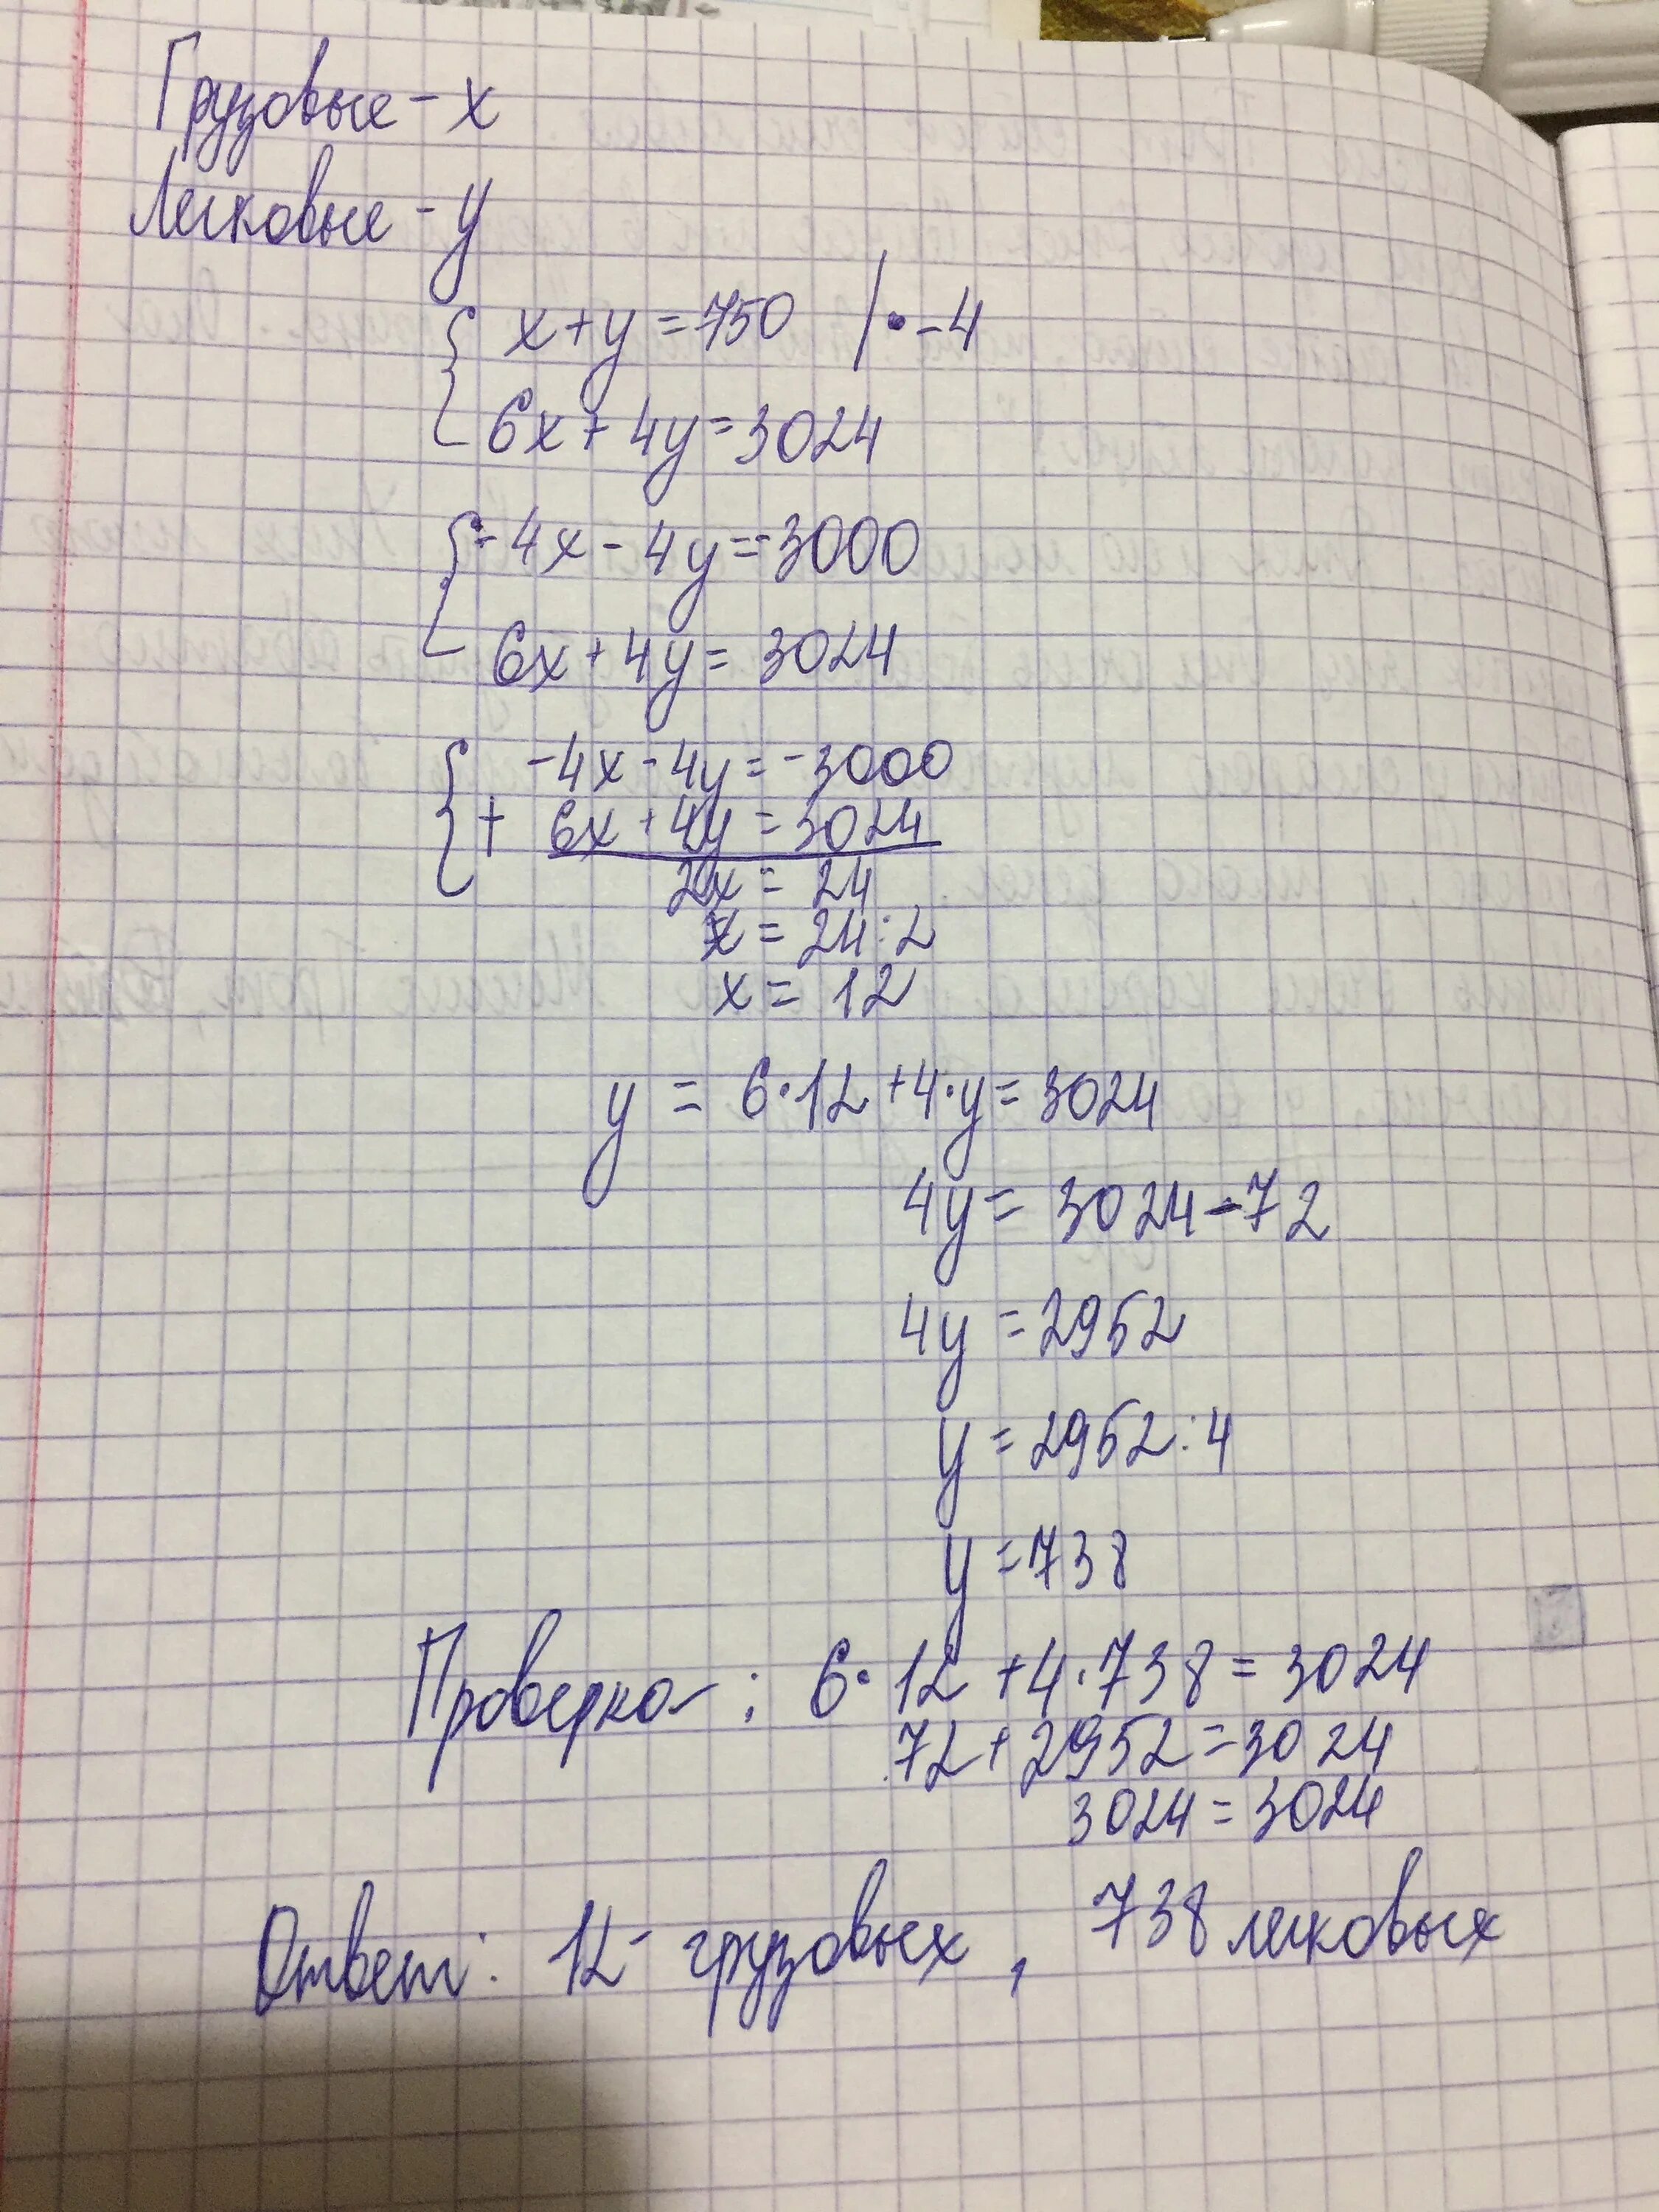 Грузовые - x
Легковые - y
x + y = 750 | · -4
6x + 4y = 3024
-4x - 4y = -3000
6x + 4y = 3024
-4x - 4y = -3000
+ 6x + 4y = 3024
2x = 24
x = 24 : 2
x = 12
y = 6 · 12 + 4 · y = 3024
4y = 3024 - 72
4y = 2952
y = 2952 : 4
y = 738
Проверка : 6 · 12 + 4 · 738 = 3024
72 + 2952 = 3024
3024 = 3024
Ответ: 12 - грузовых , 738 легковых